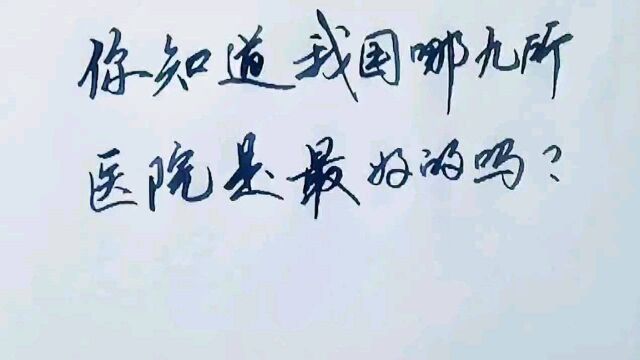 你知道我国哪九所
医院是最好的吗?